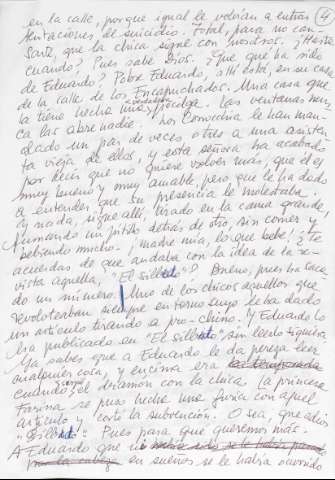 en la calle, porque igual le volvían a entrar
tentaciones de suicidio. Total, para no can-
sarte, que la chica sigue con nosotros. ¿Hasta
cuándo? Pues sabe Dios. ¿Que qué ha sido
de Eduardo? Pobre Eduardo, allí está, en su casa
de la calle de los Encapuchados. Una casa que
la tiene hecha una verdadera pocilga. Las ventanas nun-
ca las abre nadie. Los Cornichía le han man-
dado un par de veces o tres a una asisten-
ta vieja de ellos, y esta señora ha acabado
por decir que no quiere volver más, que él es
muy bueno y muy amable, pero que le ha dado
a entender que su presencia le molestaba.
Y nada, sigue allí, tirado en la cama grande
fumando un pitillo detrás de otro, sin comer y
bebiendo mucho. ¡Madre mía, lo que bebe! ¿Te
acuerdas de que andaba con la idea de la re-
vista aquella, "El silbido"? Bueno, pues ha saca-
do un número. Uno de los chicos aquellos que
revoloteaban siempre en torno suyo le ha dado
un artículo tirando a pro-chino. Y Eduardo lo
ha publicado en "El silbido" sin leerlo siquiera
Ya sabes que a Eduardo le da pereza leer
cualquier cosa, y encima era la temporada
cuando el dramón con la chica. La princesa
se puso hecha una furia con aquel
artículo y cortó la subvención. O sea, que adiós
"Silbido". Pues para qué queremos más.
A Eduardo que
en sueños se le había ocurrido
4